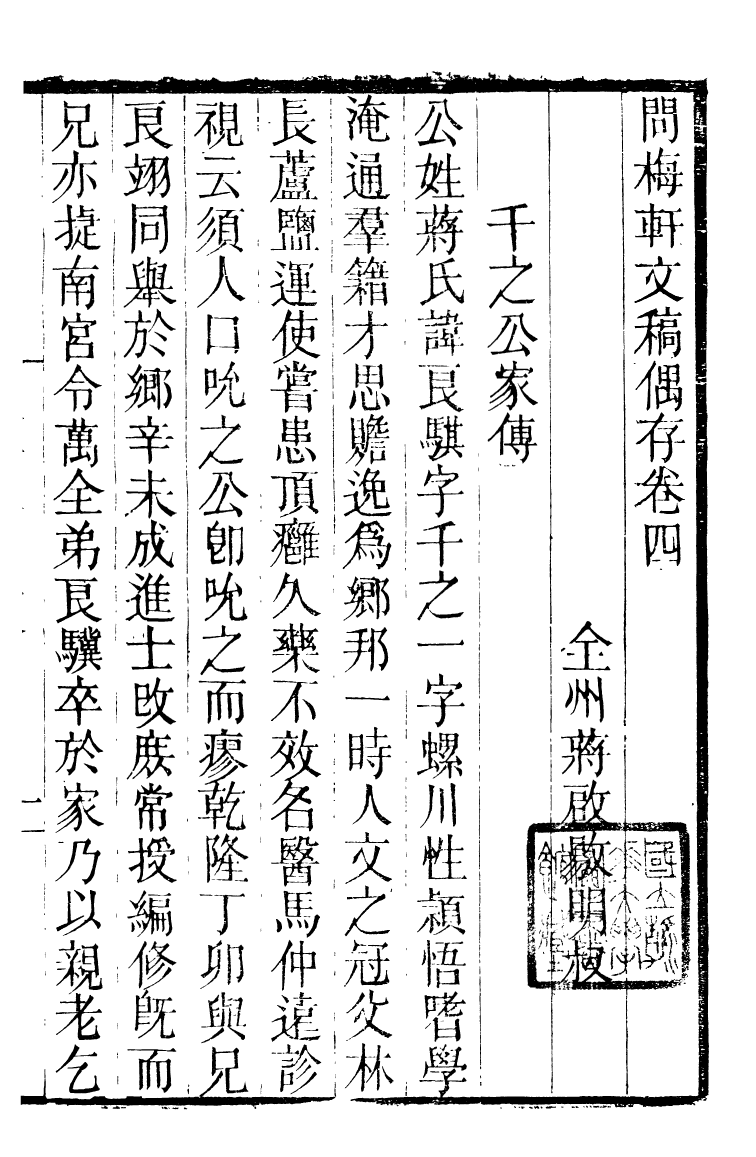 問梅軒文稿偶存卷四
全州蔣啟敭明叔
千之公家傳
公姓蔣氏諱良騏字千之一字螺川性頴悟嗜學
淹通羣籍才思贍逸爲鄉邦一時人文之冠父林
長蘆鹽運使嘗患頂癰久藥不效名醫馬仲遠診
視云須人口吮之公卽吮之而瘳乾隆丁卯與兄
良翊同舉於鄉辛未成進士改庶常授編修旣而
兄亦捷南宮令萬全弟良驥卒於家乃以親老乞
一